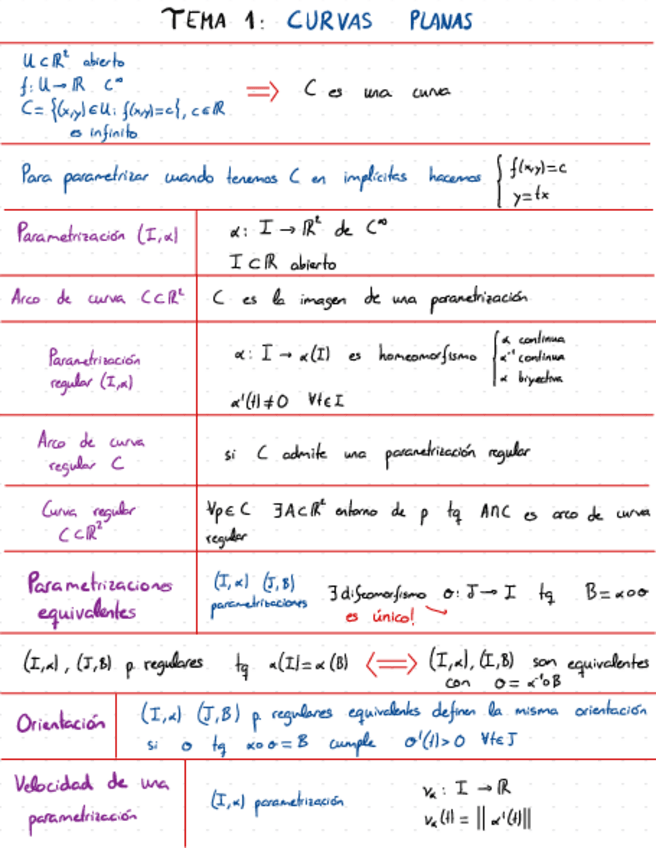 TEMA 1: CURVAS PLANAS
U⊂ℝ² abierto
f: U→ℝ C^∞
C= {(x,y)∈U: f(x,y)=c}, c∈ℝ ⟹ C es una curva
es infinito
Para parametrizar cuando tenemos C en implícitas hacemos { f(x,y)=c
y=tx
Parametrización (I,α) α: I→ℝ² de C^∞
I⊂ℝ abierto
Arco de curva C⊂ℝ² C es la imagen de una parametrización
Parametrización regular (I,α) α: I→α(I) es homeomorfismo { α continua
α⁻¹ continua
α biyectiva
α'(t)≠0 ∀t∈I
Arco de curva
regular C si C admite una parametrización regular
Curva regular
C⊂ℝ² ∀p∈C ∃A⊂ℝ² entorno de p tq A∩C es arco de curva
regular
Parametrizaciones
equivalentes (I,α) (J,B)
parametrizaciones ∃ difeomorfismo σ: J→I tq B=α∘σ
es único!
(I,α), (J,B) p. regulares tq α(I)=α(B) ⟺ (I,α), (I,B) son equivalentes
con σ=α⁻¹∘B
Orientación (I,α) (J,B) p. regulares equivalentes definen la misma orientación
si σ tq α∘σ=B cumple σ'(t)>0 ∀t∈J
Velocidad de una
parametrización (I,α) parametrización vα: I→ℝ
vα(t)=||α'(t)||